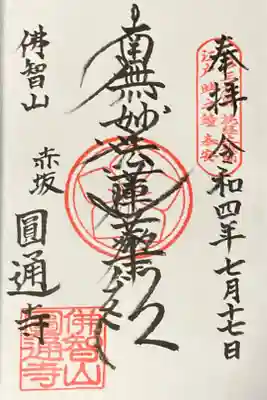 奉拝 令和四年七月十七日
南無妙法蓮華経
佛智山
赤坂
圓通寺
佛智山
圓通寺